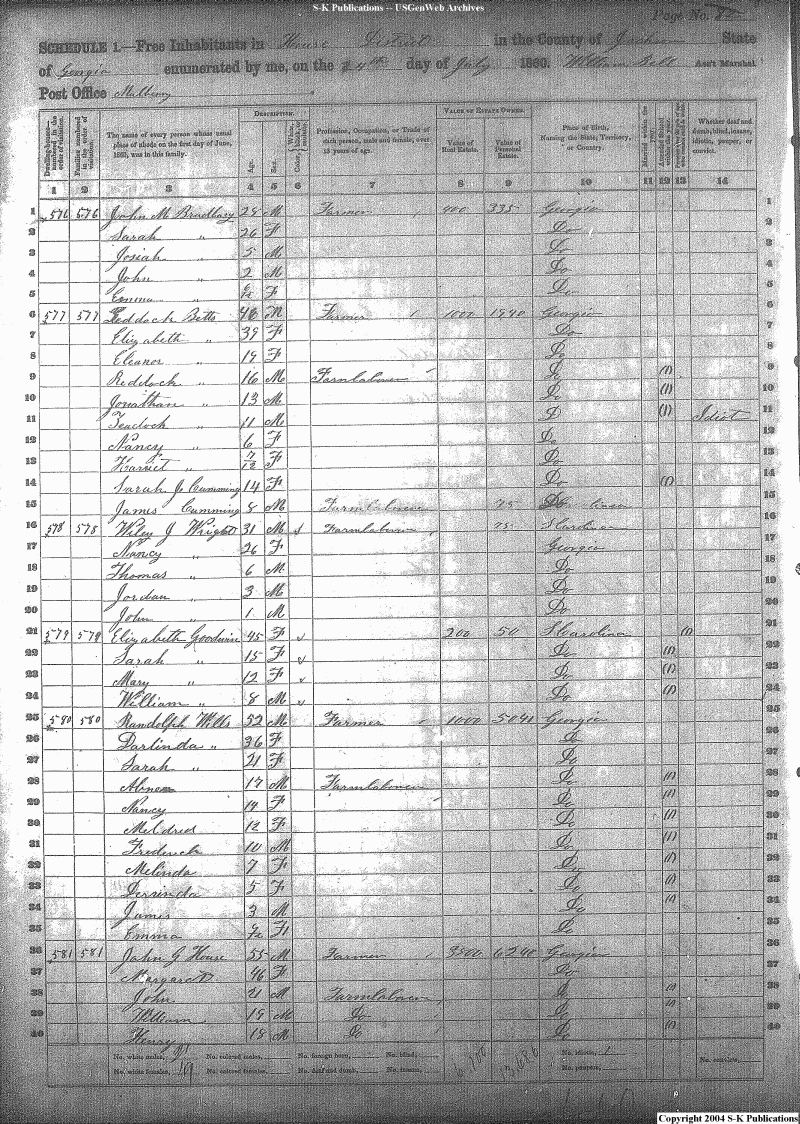 S-K Publications -- USGenWeb Archives
Page No.
SCHEDULE 1.—Free Inhabitants in House District in the County of Jackson State
of Georgia enumerated by me, on the 24th day of July 1860. William Bell Ass't Marshal
Post Office Mulberry
Dwelling-houses numbered in the order of visitation. Families numbered in the order of visitation. The name of every person whose usual place of abode on the first day of June, 1860, was in this family. DESCRIPTION. Age. Sex. Color, White, black, or mulatto. Profession, Occupation, or Trade of each person, male and female, over 15 years of age. VALUE OF ESTATE OWNED. Value of Real Estate. Value of Personal Estate. Place of Birth, Naming the State, Territory, or Country. Married within the year. Whether deaf and dumb, blind, insane, idiotic, pauper, or convict.
1 2 3 4 5 6 7 8 9 10 11 12 13 14
1 576 576 John M Bradbary M Farmer 400 335 Georgia 1
2 Sarah " 26 F Do 2
3 Josiah " 5 M Do 3
4 John " 2 M Do 4
5 Emma " F Do 5
6 577 577 Reddock Betts 46 M Farmer 1000 1940 Georgia 6
7 Elizabeth " 39 F Do 7
8 Eleanor " 19 F Do 8
9 Reddock " 16 M Farmlaborer Do (1) 9
10 Jonathan " 13 M Do (1) 10
11 " 11 M Do (1) Idiot 11
12 Nancy " 6 F Do 12
13 Harriet " 7/12 F Do 13
14 Sarah J Cumming 14 F Do (1) 14
15 James Cumming M Farmlaborer 75 15
16 578 578 Wiley J Wright 31 M Farmlaborer 75 S Carolina 16
17 Nancy " 26 F Georgia 17
18 Thomas " 6 M Do 18
19 Jordan " 3 M Do 19
20 John " 1 M Do 20
21 579 579 Elizabeth Goodwin 45 F 200 50 S Carolina (1) 21
22 Sarah " 15 F Do (1) 22
23 Mary " 12 F Do (1) 23
24 William " 8 M Do (1) 24
25 580 580 Randolph Wills 52 M Farmer 1000 5041 Georgia 25
26 Darlinda " 36 F Do 26
27 Sarah " 21 F Do 27
28 Abner 17 M Farmlaborer Do (1) 28
29 Nancy 14 F Do (1) 29
30 Meldred 12 F Do (1) 30
31 Frederick 10 M Do (1) 31
32 Melinda 7 F Do (1) 32
33 Derrinda 5 F Do (1) 33
34 James 3 M Do (1) 34
35 Emma F Do 35
36 581 581 John G House 55 M Farmer 3500 6240 Georgia 36
37 Margaret 46 F Do 37
38 John 21 M Farmlaborer Do (1) 38
39 William 19 M Do Do (1) 39
40 Henry 18 M Do Do (1) 40
No. white males, 21 No. colored males, No. foreign born, No. blind, No. idiotic, 1 No. convicts,
No. white females, 19 No. colored females, No. deaf and dumb, No. insane, No. pauper,
Copyright 2004 S-K Publications